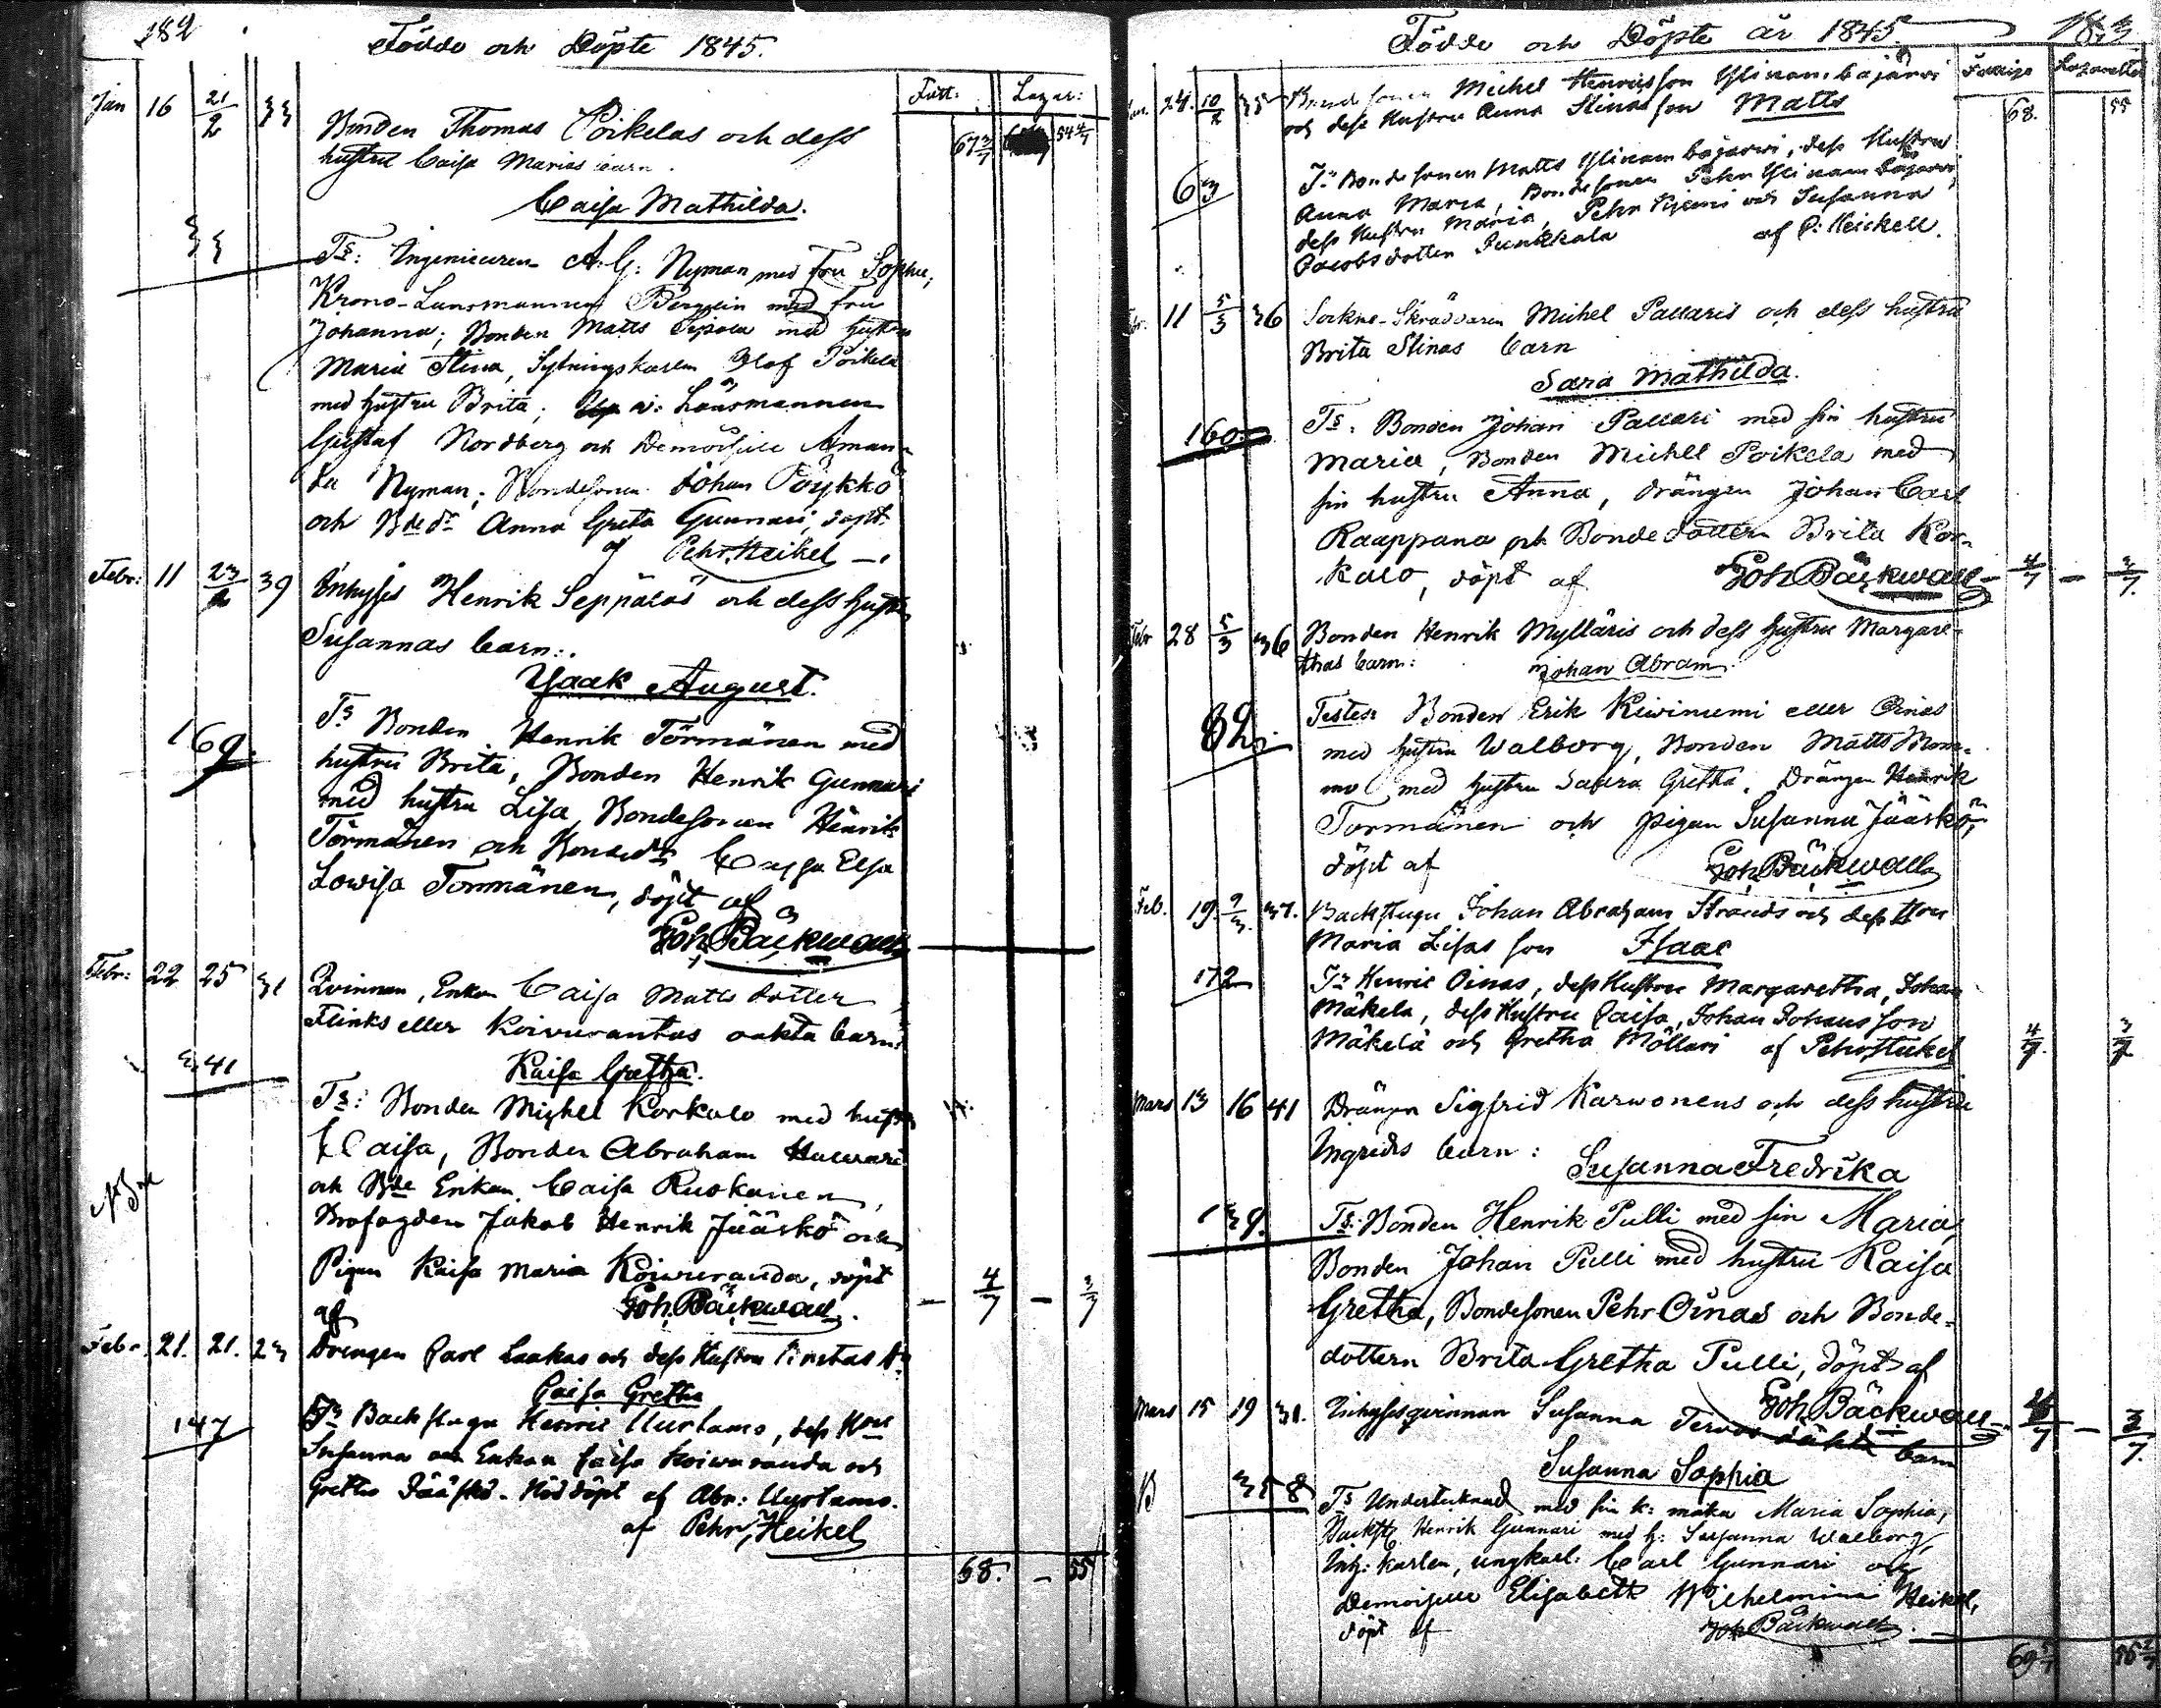 182
Födde och Döpte 1845.
Fatt: Lazar:
Jan 16 21/2 33 Bonden Thomas Poikelas och dess
67 3/7 54 4/7
hustru Caisa Marias barn.
Caisa Mathilda.
33
Ts: Ingenieuren A. G: Nyman med Fru Sophie,
Krono-Länsmannen Bergelin med Fru
Johanna; Bonden Matts Sipola med hustru
Maria Stina, Sytningskarlen Olof Poikela
med hustru Brita; Länsmannen
Gustaf Nordberg och Demoiselle Aman-
da Nyman; Bondesonen Johan Pöykkö
och Bdedr Anna Greta Gunnari, döpt
af Pehr Heikel
Febr: 11 23/2 39 Inhyses Henrik Seppäläs och dess hustru
Susannas barn:
Isaak August.
169.
Ts Bonden Henrik Törmänen med
hustru Brita, Bonden Henrik Gunnari
med hustru Lisa, Bondesonen Henrik
Törmänen och Bondedr Caisa Elsa
Lowisa Tormänen, döpt af
Joh. Bäckwall
Febr: 22 25 31 Qvinnan, Enkan Caisa Matts dotter
Flinks eller Koivurantas oäkta barn:
341
Kaisa Gretha.
Ts: Bonden Michel Korkalo med hustru
Caisa, Bonden Abraham
och Bde Enkan Caisa Ruokanen,
Brofogden Jakob Henrik Jääskö och
Pigan Kaisa Maria Koivuranda, döpt
af Joh. Bäckwall.
– 4/7 – 3/7
Febr. 21. 21. 23 Drengen Carl Laakas och dess Hustru
Caisa Gretha
147
Ts Backstugu Henric Uurtamo, dess Hru
Susanna och Enkan Caisa Koivuranda och
Gretha Jääskö. Nöddöpt af Abr: Uurtamo.
af Pehr Heikel
68. – 55
Födde och Döpte år 1845.
183
Fattiga Lazarettet
24. 10/2 35 Bondesonen Michel Henricsson Ylinambajärvi
68. 55
och dess Hustru Anna Stinas son Matts
63
Ts Bondesonen Matts Ylinambajärvi, dess Hustru
Anna Maria, Bondesonen Pehr Ylinambajärvi,
dess Hustru Maria, Pehr Kujemi och Susanna
Jacobsdotter Sunkkala af P. Heickell.
11 5/3 36 Sockne-Skräddaren Michel Pallaris och dess hustru
Brita Stinas barn
Sara Mathilda.
160
Ts: Bonden Johan Pallari med sin hustru
Maria, Bonden Michel Poikela med
sin hustru Anna, drängen Johan Carl
Raappana och Bondedottern Brita Kor-
kalo, döpt af Joh. Bäckwall – 4/7 – 3/7
Febr 28 5/3 36 Bonden Henrik Mylläris och dess hustru Margare-
thas barn: Johan Abram
62
Testes: Bonden Erik Kiwiniemi eller Oinas
med hustru Walborg, Bonden Matts Mom-
mo med hustru Saara Gretha, Drängen Henrik
Tormänen och pigan Susanna Jääskö,
döpt af Joh. Bäckwall
Feb. 19 9/3 37. Backstugu Johan Abraham Strands och dess Hru
Maria Lisas son Isaac
172
Ts Henric Oinas, dess Hustru Margaretha, Johan
Mäkela, dess Hustru Caisa, Johan Johansson
Mäkelä och Gretha Möllari af Pehr Heikel
4/7. 3/7
Mars 13 16 41 Drängen Sigfrid Karwonens och dess hustru
Ingrids barn: Susanna Fredrika
139.
Ts: Bonden Henrik Pulli med sin Maria,
Bonden Johan Pulli med hustru Kaisa
Gretha, Bondesonen Pehr Oinas och Bonde-
dottern Brita Gretha Pulli, döpt af
Joh. Bäckwall 4/7 – 3/7.
Mars 15 19 31. Inhysesqvinnan Susanna Tervos oäkta barn
Susanna Sophia
358
Ts Undertecknad med sin k: maka Maria Sophia,
Backstg Henrik Gunnari med h: Susanna Walborg,
Inh: karlen, ungkarl: Carl Gunnari och
Demoiselle Elisabeth Wilhelmina Heikel,
döpt af Joh. Bäckwall.
69 5/7